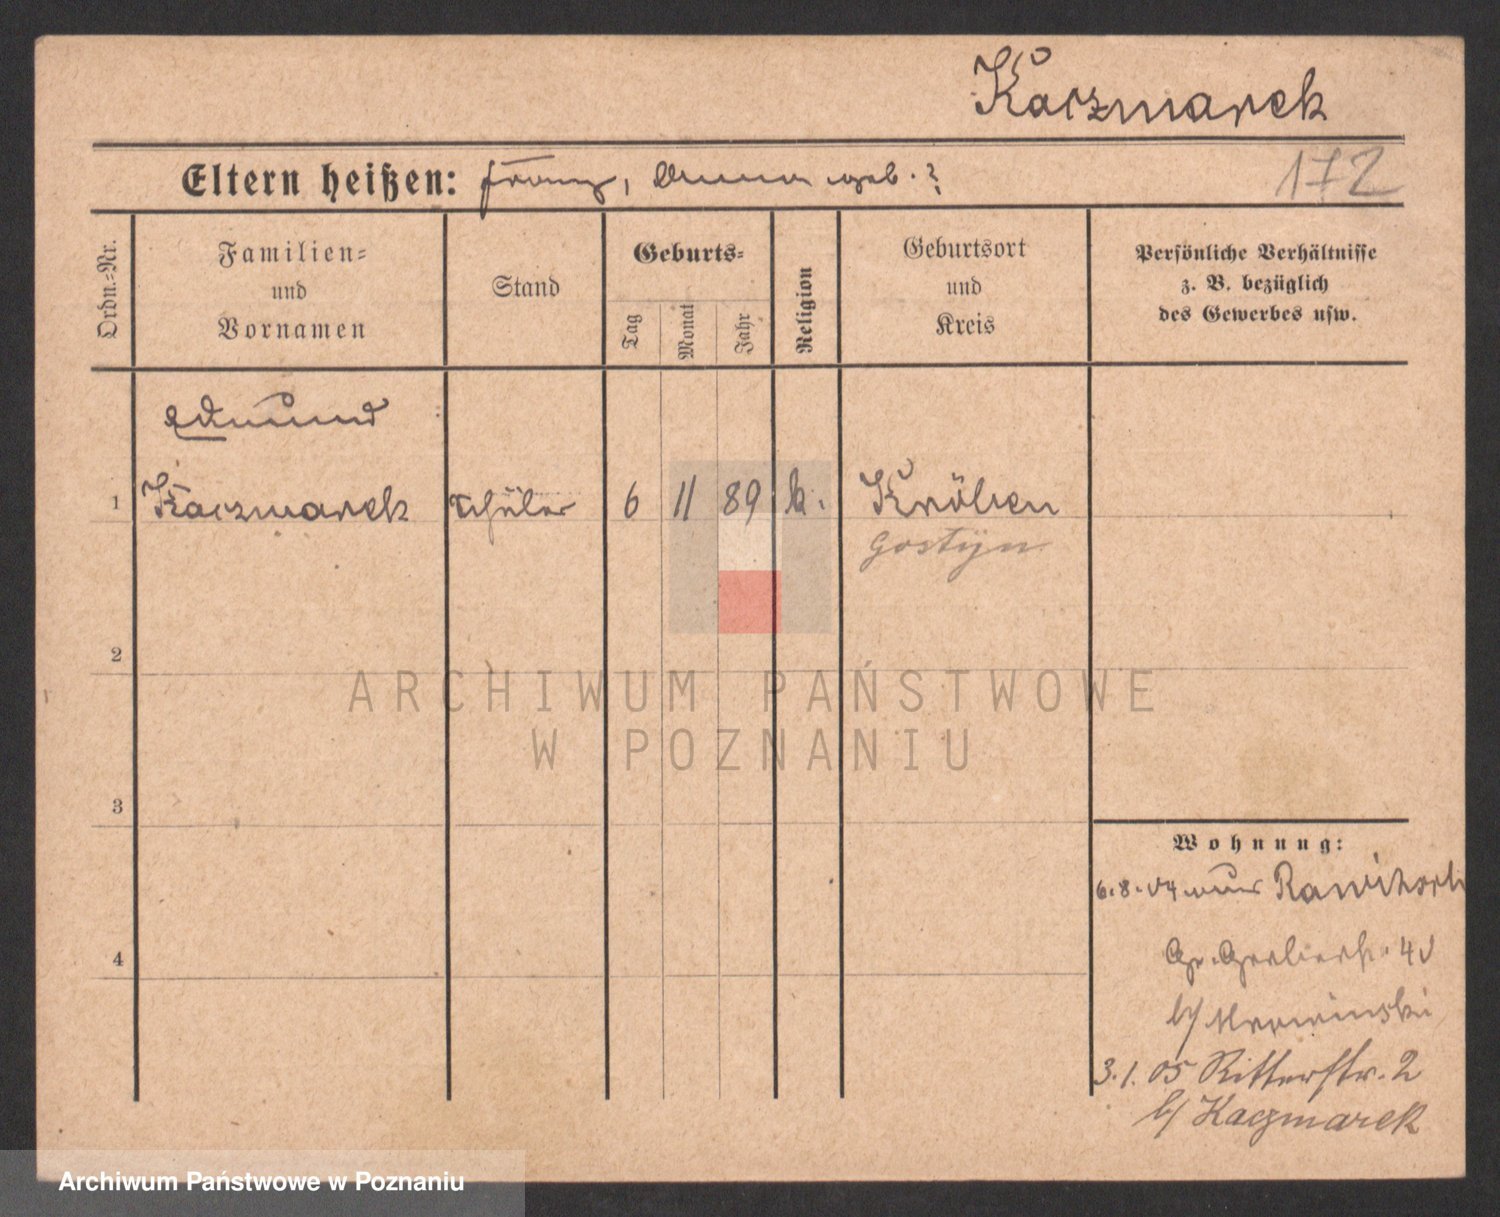 Kaczmarek
Eltern heißen: Franz, Anna geb. ?
172
Ordn.-Nr.
Familien-
und
Vornamen
Stand
Geburts-
Tag
Monat
Jahr
Religion
Geburtsort
und
Kreis
Persönliche Verhältnisse
z. B. bezüglich
des Gewerbes usw.
Edmund
1 Kaczmarek Schüler 6 11 89 k. Kröben
Gostyn
2
3
4
Wohnung:
6.8.04 von Rawitsch
Gr. Gerberstr. 40
b/ Mrowinski
3.1.05 Ritterstr. 2
b/ Kaczmarek
ARCHIWUM PAŃSTWOWE
W POZNANIU
Archiwum Państwowe w Poznaniu